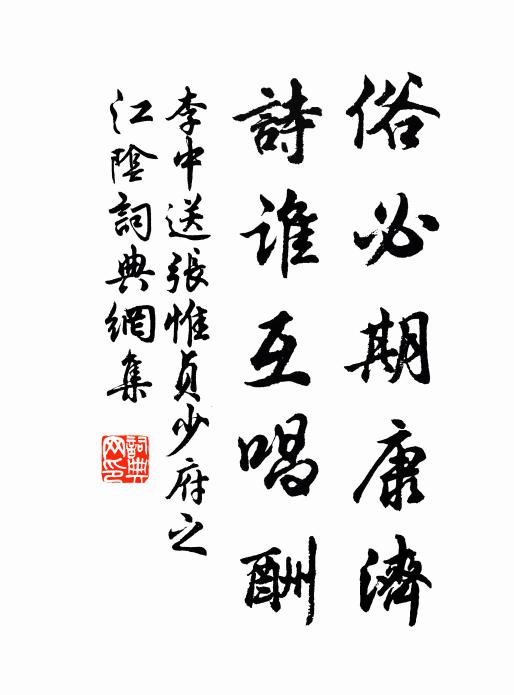 俗必期康濟
詩誰互唱酬
李中送張惟貞少府之
江陰詞典網集
詞典网印